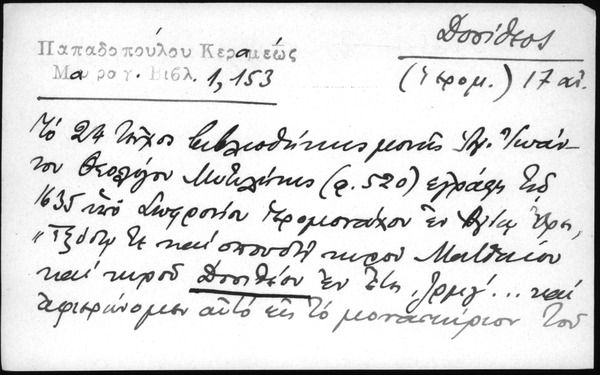 Παπαδοπούλου Κεραμέως
Μαυρογ. Βιβλ. 1, 153
Δοσίθεος
(Ἱερομ.) 17 αἰ.
Τὸ 24 τεῦχος βιβλιοθήκης μονῆς Ἁγ. Ἰωάν-
νου Θεολόγου Μυτιλήνης (φ. 520) ἐγράφη τῷ
1635 ὑπὸ Σωφρονίου ἱερομονάχου ἐν Ἁγίῳ Ὄρει,
"Ἐξόδῳ τε καὶ σπουδῇ κυροῦ Ματθαίου
καὶ κυροῦ Δοσιθέου ἐν ἔτει ͵ζρμγʹ... καὶ
ἀφιερώνομεν αὐτὸ εἰς τὸ μοναστήριον τοῦ